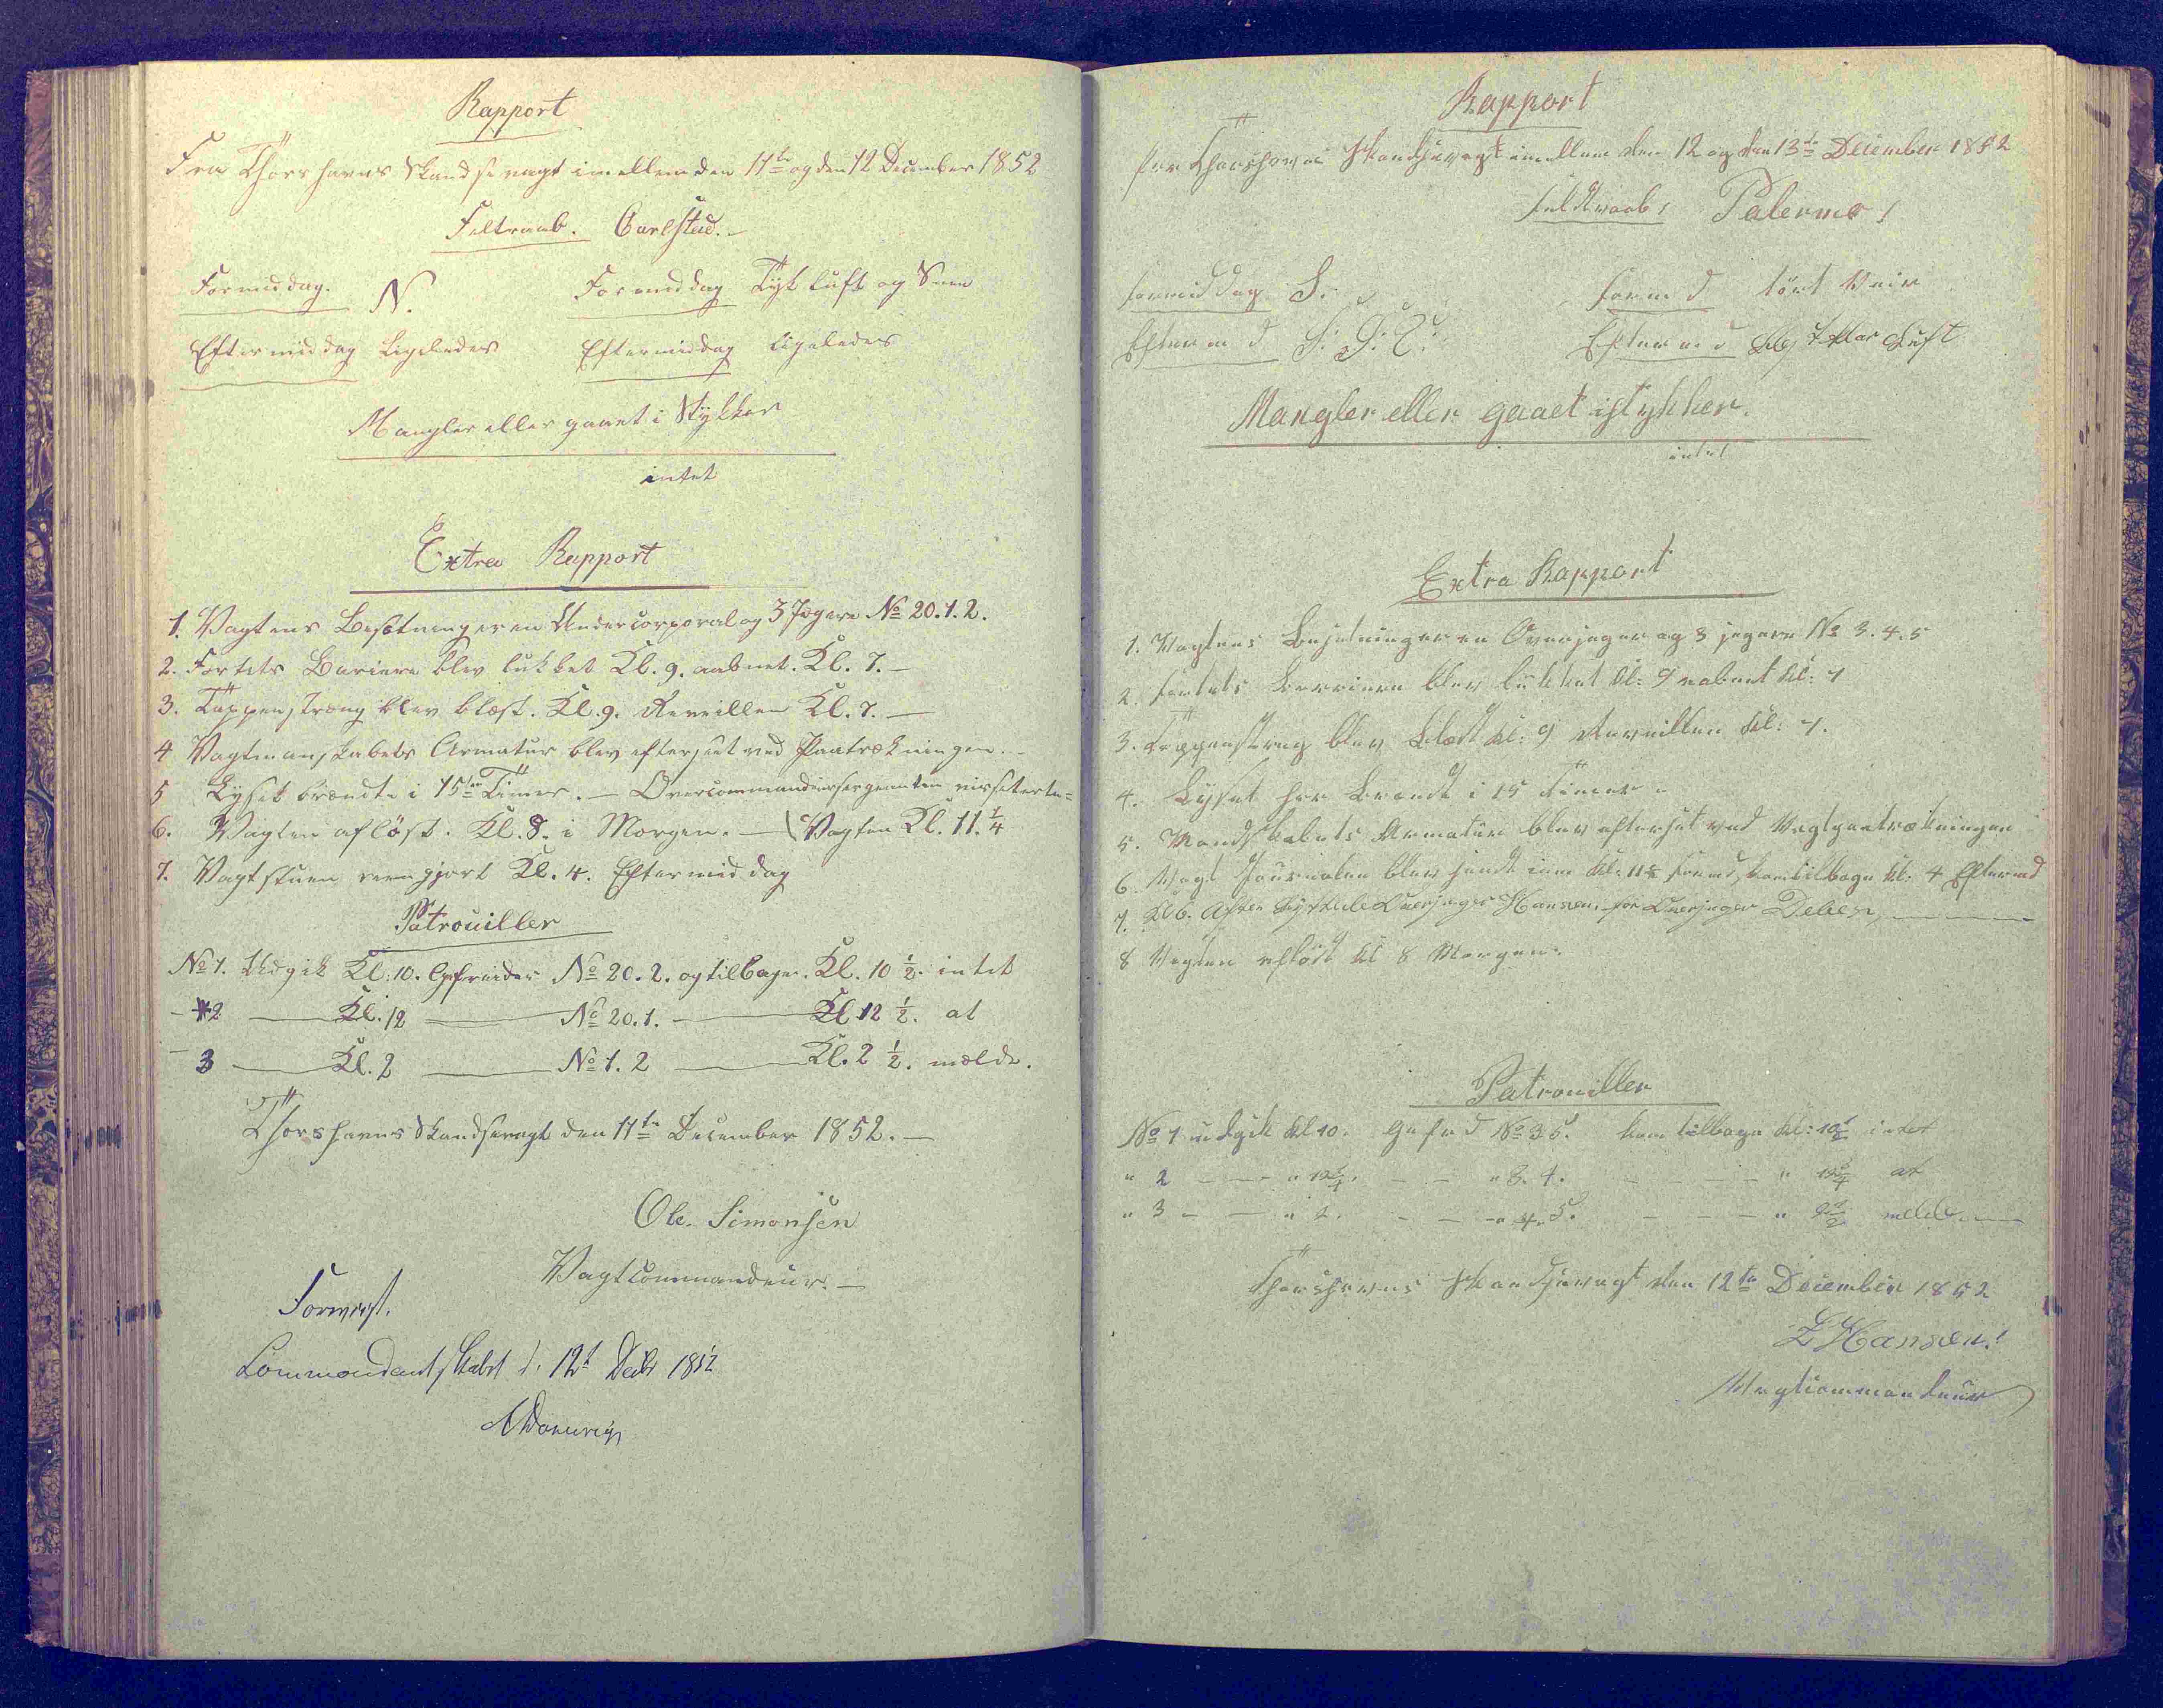 Rapport
Fra Thorshavns Skandsevagt imellem den 11te og den 12 December 1852
Feltraab. Carlstad.
Formiddag. N. Formiddag Tyk Luft og Snee
Eftermiddag Ligeledes Eftermiddag ligeledes
Mangler eller gaaet i Stykker
intet
Extra Rapport
1. Vagtens Besætning er en Undercorporal og 3 Jægere No 20.1.2.
2. Fortets Bariere blev lukket Kl. 9. aabnet. Kl. 7.
3. Tappenstræng blev blæst. Kl. 9. Reveillen Kl. 7.
4 Vagtmanskabets Armatur blev efterseet ved Paatrækningen
5 Lyset brændte i 15 Timer. — Overcommandeersergeanten visiterte
6. Vagten afløst. Kl. 8. i Morgen. — Vagten Kl. 11 1/4
7. Vagtstuen reengjort Kl. 4. Eftermiddag
Patrouiller
No 1. Udgik Kl. 10. Gefreider No 20. 2. og tilbage. Kl. 10 1/2. intet
- 2 — Kl. 12 — No 20. 1. — Kl 12 1/2. at
- 3 — Kl. 2 — No 1. 2 — Kl. 2 1/2. melde.
Thorshavns Skandsevagt den 11te December 1852.
Ole Simonsen
Vagtcommandeur.
Forevist.
Commandantskabet d. 12t Decbr 1852
Rapport
fra Thorshavns Skandsevagt imellem den 12 og den 13de December 1852
Feldtraab: Palermo!
Formiddag S: Formd tört Veir
Efterm d S: Efterm d Luft
Mangler eller gaaet istykker.
intet
Extra Rapport
1. Vagtens Besætning er en Overjæger og 3 jægere No 3. 4. 5
2. Fortets Barrieren blev lukket Kl: 9 aabnet Kl: 7
3. Tappenstræng blev Blæst Kl: 9 Reveillen Kl: 7.
4. Lyset har Brændt i 15 Timer
5. Mandskabets Armatur blev efterset ved Vagtpaatrækningen
6. Vagt Journalen blev sendt ind Kl: 11 Formd kom tilbage Kl: 4 Eftermd
7. Kl 6. Aften Overjæger Hansen for Overjæger Debes
8 Vagten afløst Kl 8 Morgen.
Patrouiller
No 1 udgik Kl 10. Gefrd No 3 5. kom tilbage Kl: 10 1/2 intet
" 2 — — " — — " 3. 4. — — — " at
" 3 — — " 2. — — " 4. 5. — — — " 2 1/2 melde.
Thorshavns Skandsevagt den 12te December 1852
Hansen!
Vagtcommandeur